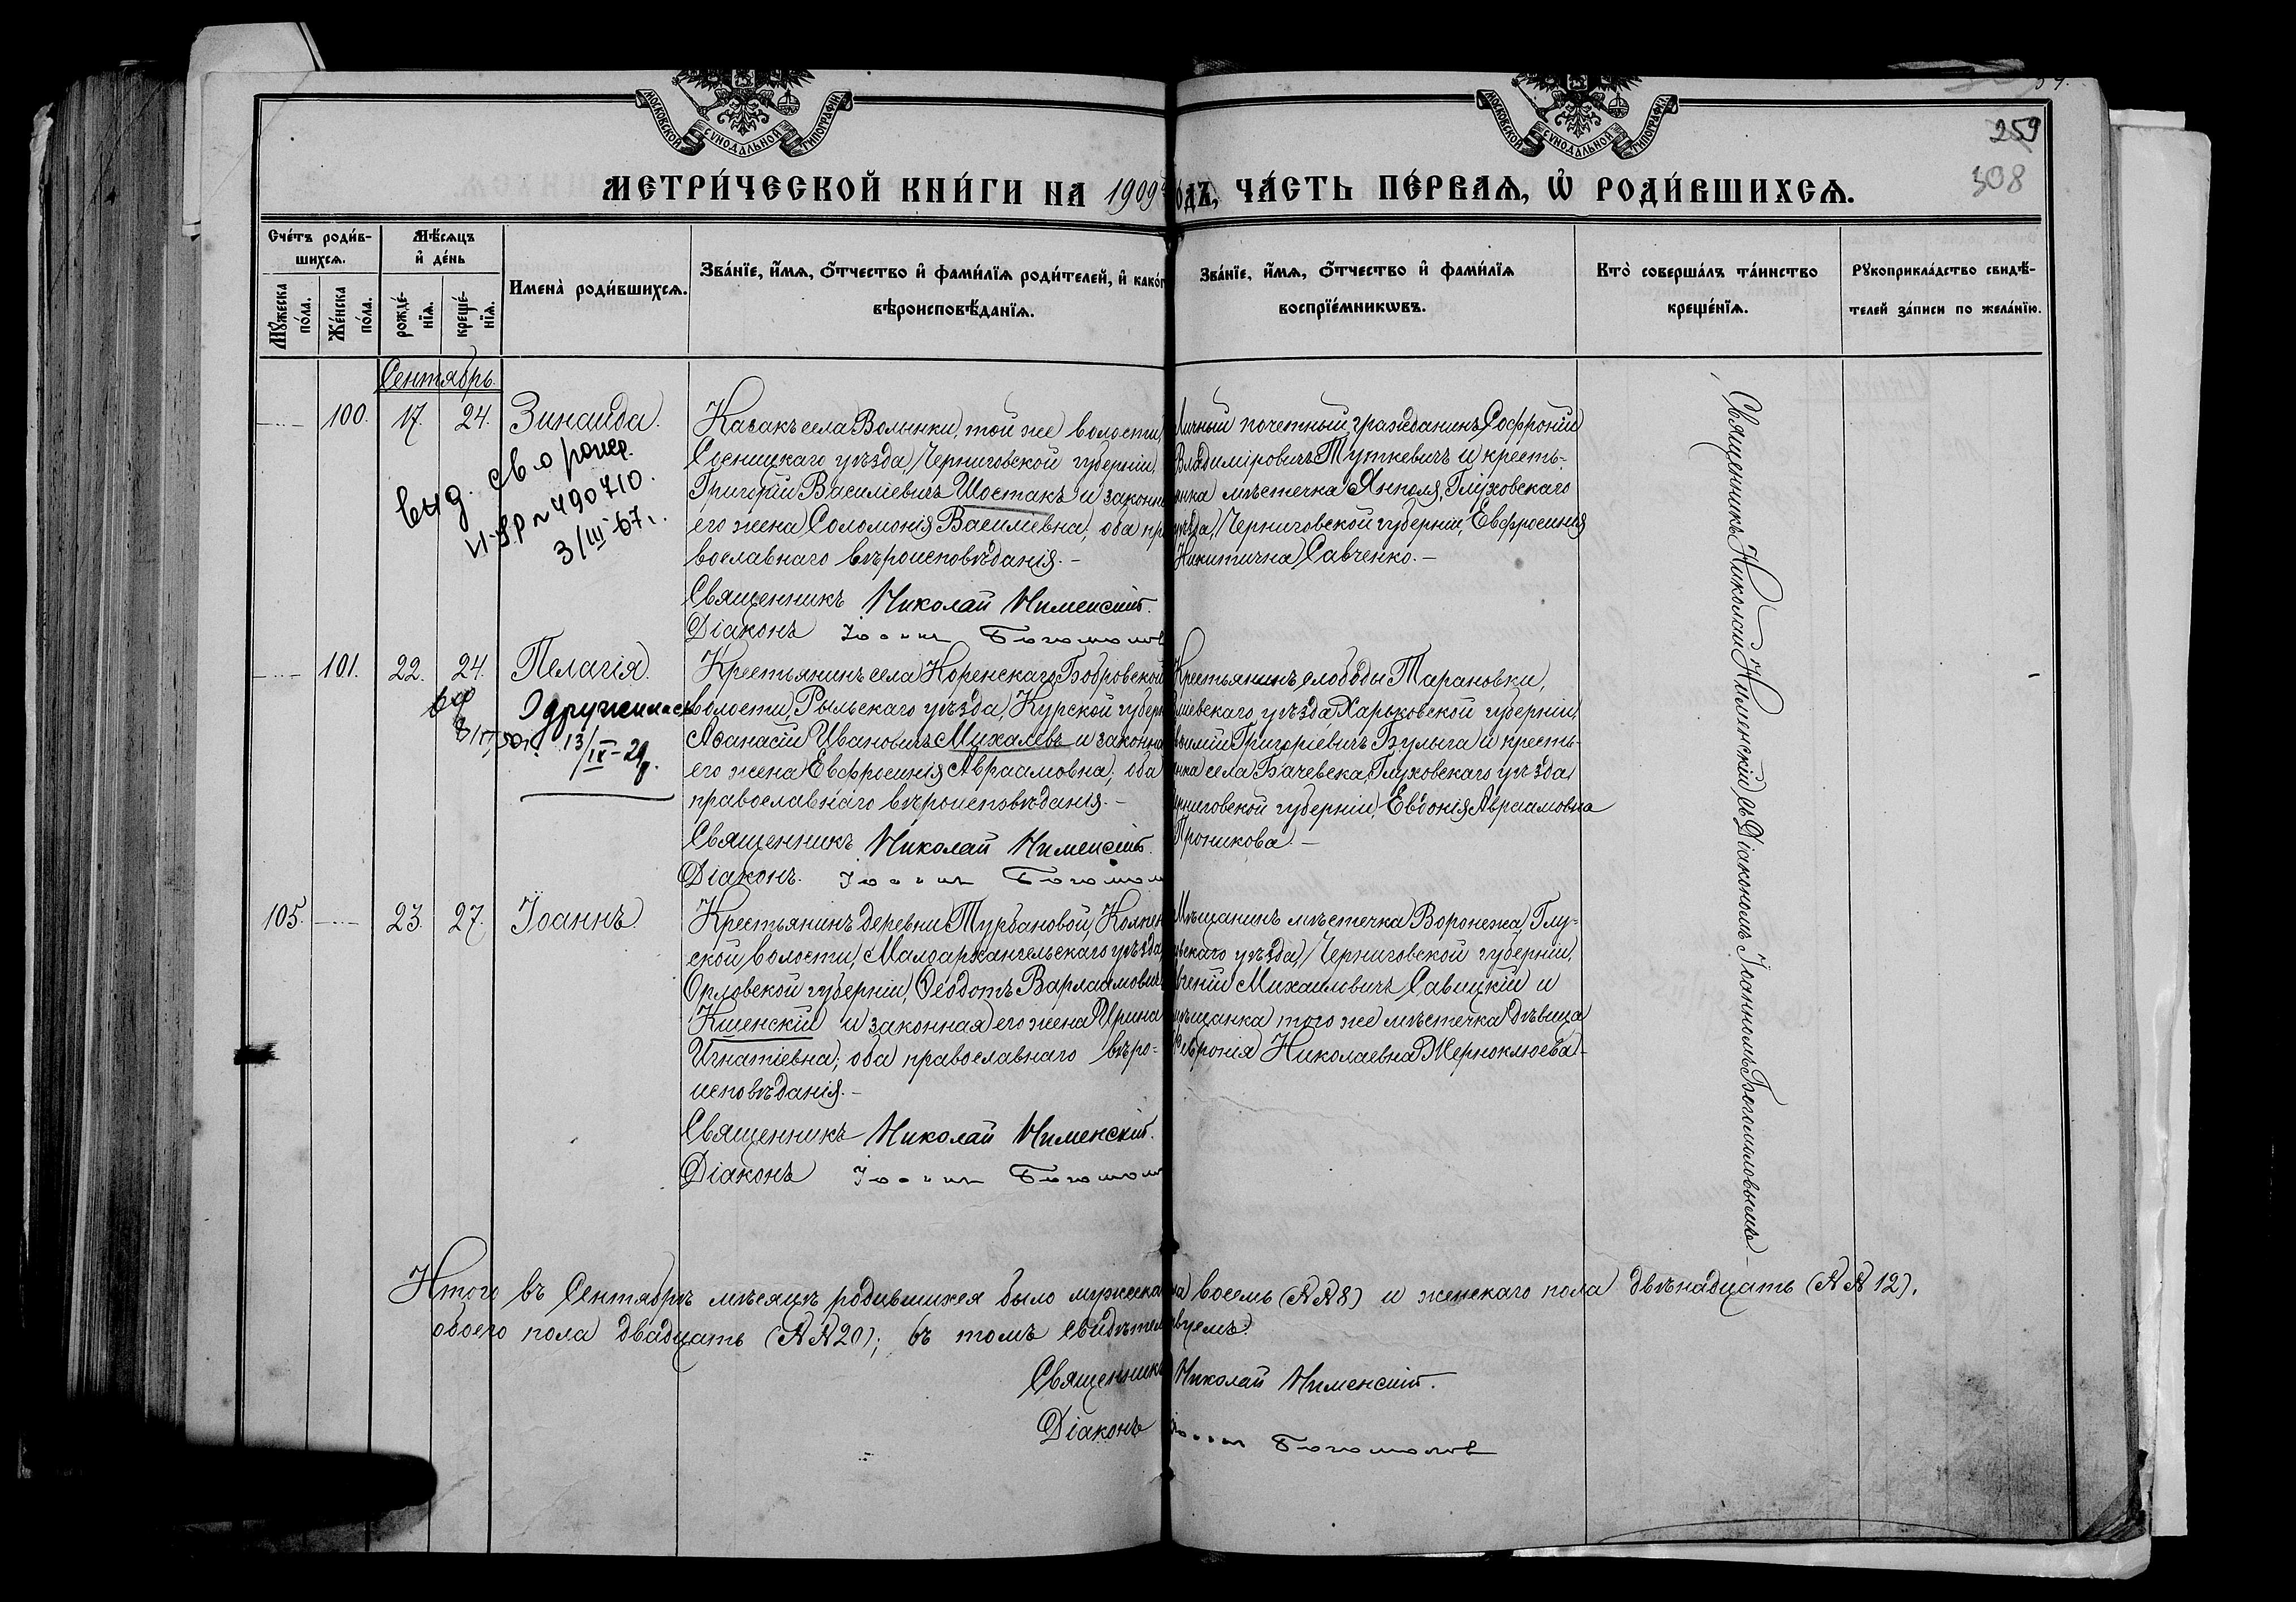 МОСКОВСКОЙ СУНОДАЛЬНОЙ ТИПОГРАФІИ
МОСКОВСКОЙ СУНОДАЛЬНОЙ ТИПОГРАФІИ
259
308
МЕТРИ́ЧЕСКОЙ КНИ́ГИ НА 1909 г
одъ, ЧА́СТЬ ПЕ́РВАѦ, Ѡ҆ РОДИ́ВШИХСѦ.
Сче́тъ роди́в-
шихсѧ.
Мѣ́сѧцъ
и҆ де́нь
Мꙋ́жеска по́ла.
Же́нска по́ла.
рожде́-нїѧ.
креще́-нїѧ.
Имена̀ роди́вшихсѧ.
Зва́нїе, и҆́мѧ, ѻ҆́тчество и҆ фами́лїѧ роди́телей, и҆ како́г
вѣроисповѣ́данїѧ.
Зва́нїе, и҆́мѧ, ѻ҆́тчество и҆ фами́лїѧ
воспрїе́мникѡвъ.
Кто̀ соверша́лъ та́инство
креще́нїѧ.
Рꙋкоприкла́дство свидѣ́-
телей за́писи по жела́нїю.
Сентябрь.
100. 17. 24. Зинаида.
выд. св-о рожд.
3/III-67г.
Казакъ села Волынки, той же волости,
Сосницкаго уѣзда, Черниговской губерніи,
Григорій Василіевичъ Шостакъ и законн
его жена Соломонія Василіевна; оба пр
вославнаго вѣроисповѣданія. -
Священникъ Николай Нименскій.
Діаконъ Іоаннъ Богомолов
Личный почетный гражданинъ Софроній
Владиміровичъ Туткевичъ и кресть-
янка мѣстечка Янполя, Глуховскаго
уѣзда, Черниговской губерніи, Евфросинія
Никитична Савченко. -
101. 22. 24. Пелагія.
Одружилась
13/IX-29р.
Крестьянинъ села Коренскаго, Бобровской
волости, Рыльскаго уѣзда, Курской губерн
Аѳанасій Ивановичъ Михалевъ и законна
его жена Евфросинія Авраамовна; оба
православнаго вѣроисповѣданія. -
Священникъ Николай Нименскій.
Діаконъ. Іоаннъ Богомол
Крестьянинъ слободы Тарановки,
Зміевскаго уѣзда Харьковской губерніи,
Григоріевичъ Булыга и кресть-
янка села Бачевска, Глуховскаго уѣзда
Черниговской губерніи, Евдокія Авраамовна
Проникова. -
105. 23. 27. Іоаннъ.
Крестьянинъ деревни Турбановой,
ской волости, Малоархангельскаго уѣзда,
Орловской губерніи, Ѳеодотъ Варлаамовичъ
Кшенскій и законная его жена Ирина
Игнатіевна; оба православнаго вѣро-
исповѣданія. -
Священникъ Николай Нименскій.
Діаконъ Іоаннъ Богомол
Мѣщанинъ мѣстечка Воронежа, Глу-
ховскаго уѣзда, Черниговской губерніи,
Михаиловичъ Савицкій и
мѣщанка того же мѣстечка дѣвица
Февронія Николаевна Жерноклюева. -
Священникъ Николай Нименскій съ Діакономъ Іоанномъ Богомоловымъ.
Итого въ Сентябрѣ мѣсяцѣ родившихся было мужескаго пола восемь (№№ 8) и женскаго пола двѣнадцать (№№ 12),
обоего пола двадцать (№№ 20); въ томъ свидѣтельствуемъ.
Священникъ Николай Нименскій.
Діаконъ Іоаннъ Богомолов